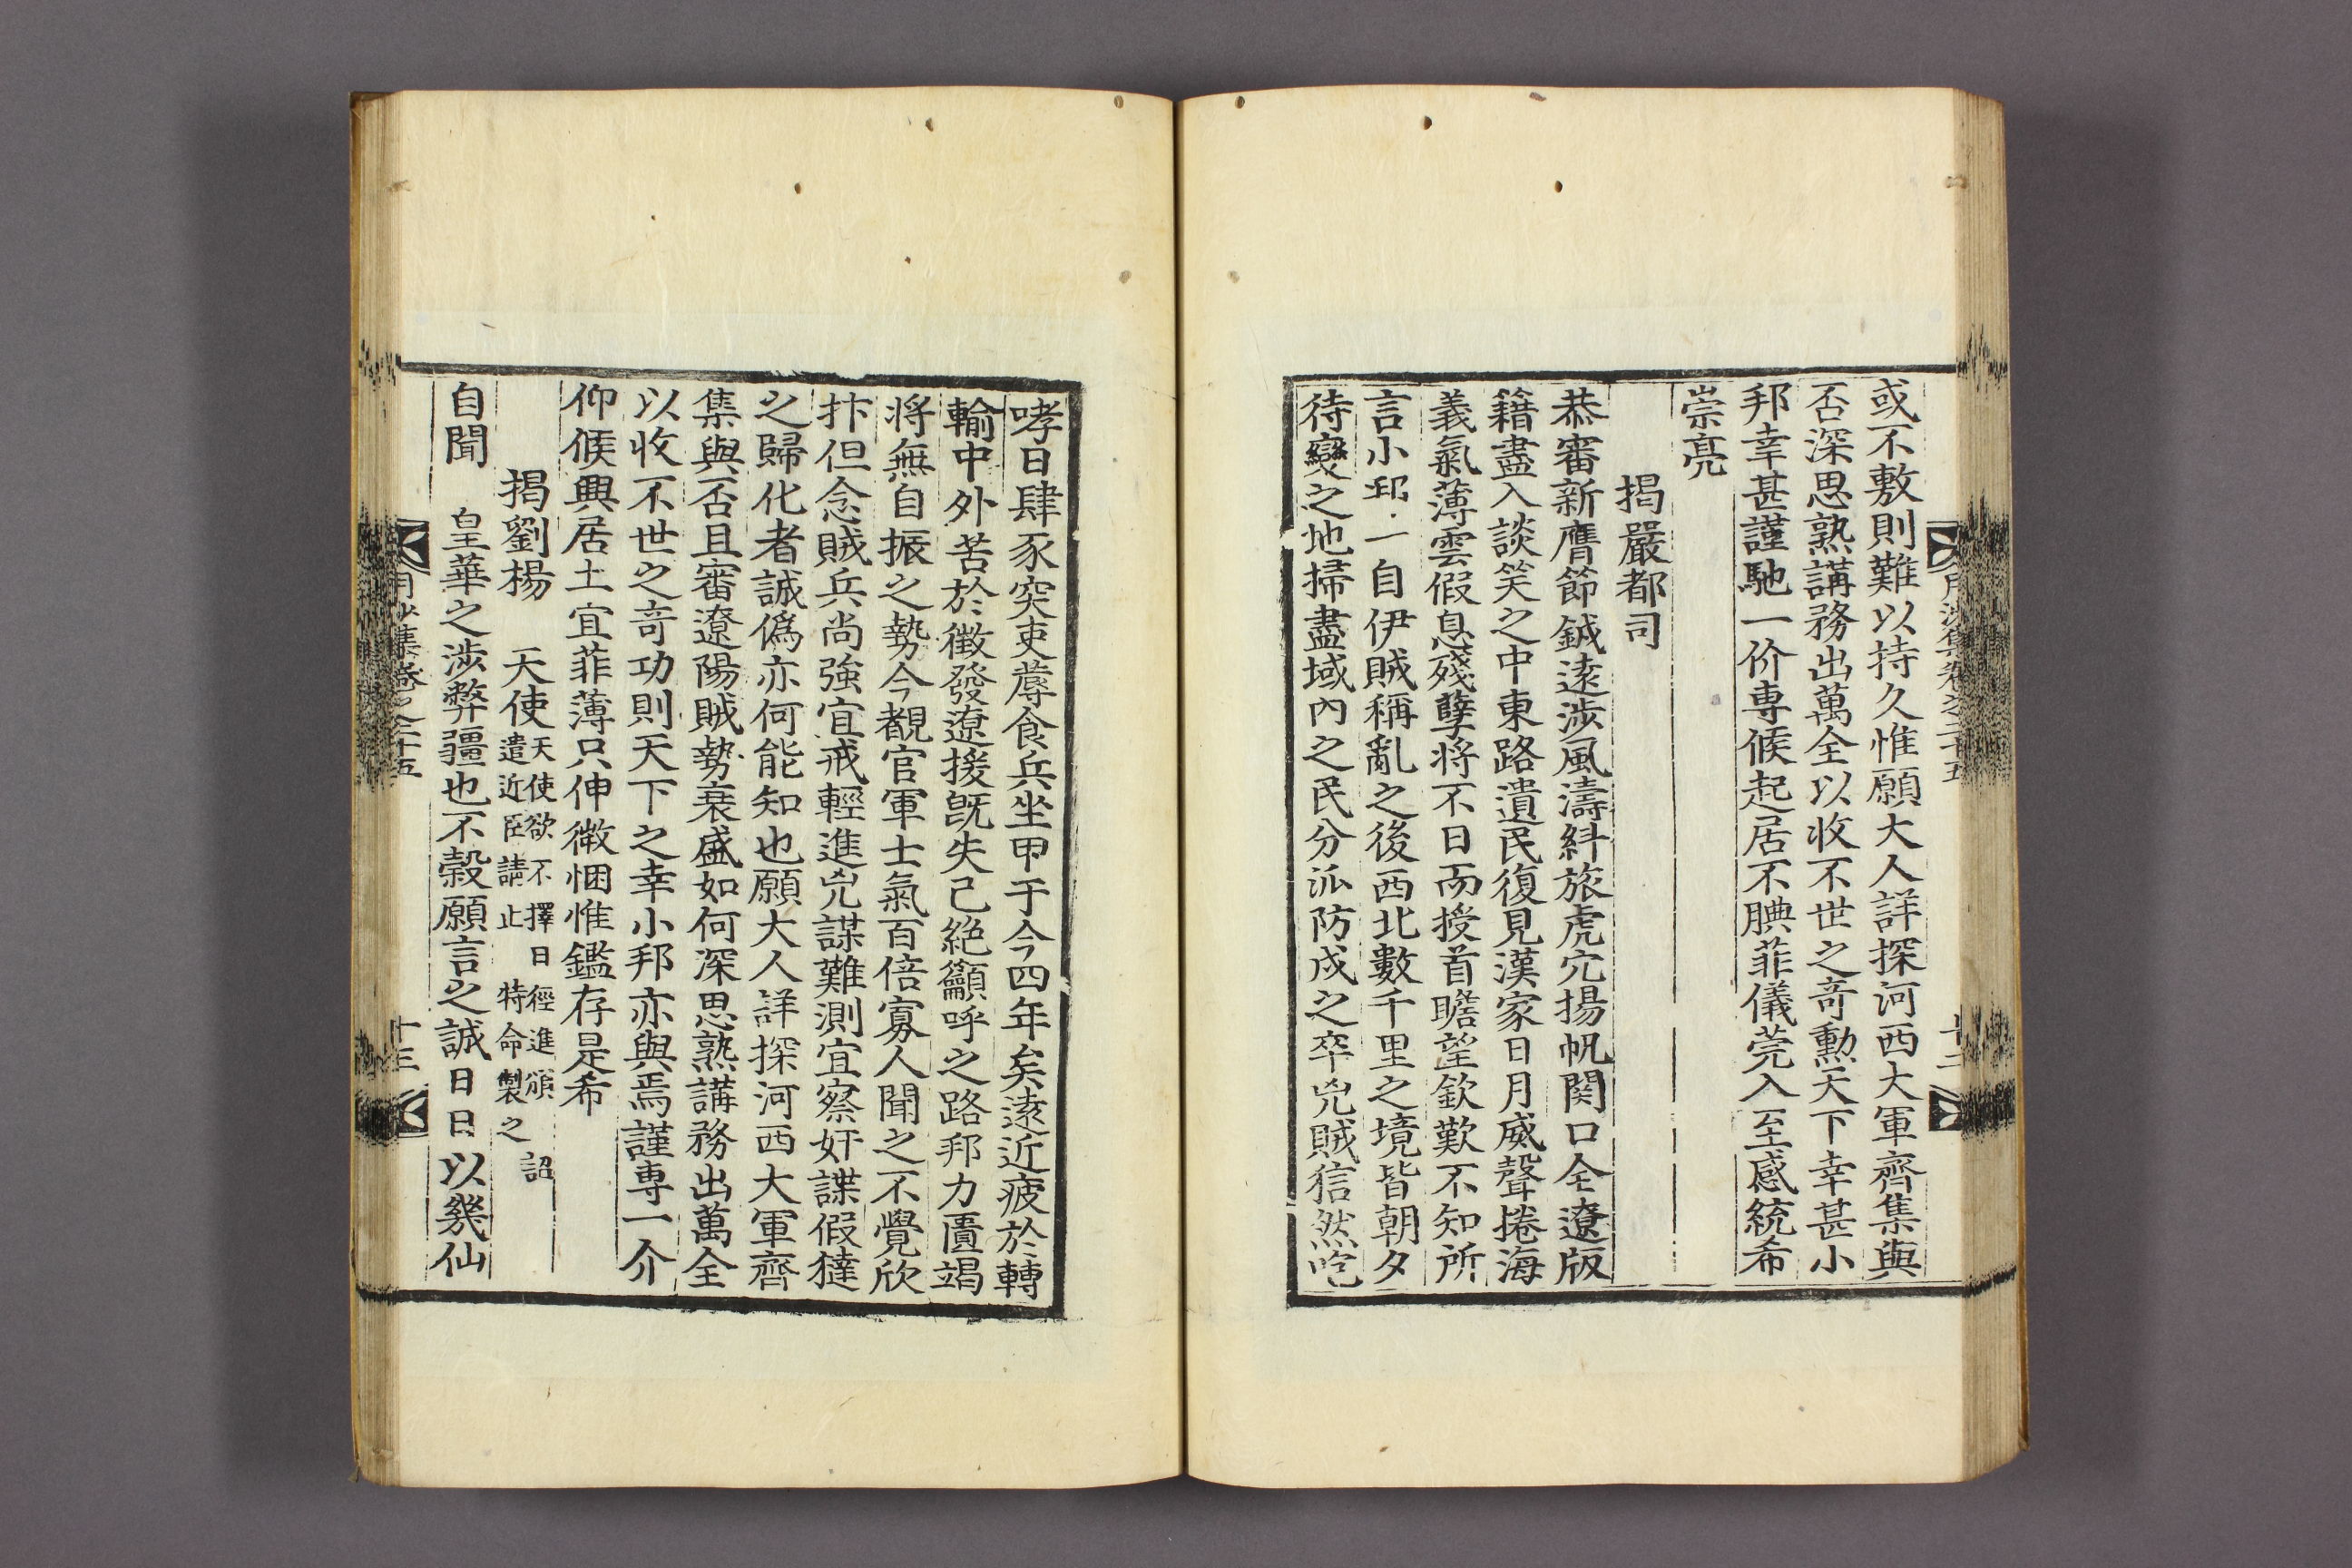 或不敷則難以持久惟願大人詳探河西大軍齊集與
否深思熟講務出萬全以收不世之奇勳天下幸甚小
邦幸甚謹馳一价專候起居不腆菲儀莞入至感統希
崇亮
揭嚴都司
恭審新膺節鉞遠涉風濤紏旅虎穴揚帆関口全遼版
籍盡入談笑之中東路遺民復見漢家日月威聲捲海
義氣薄雲假息殘孽將不日而授首瞻望欽歎不知所
言小邦一自伊賊稱亂之後西北數千里之境皆朝夕
待變之地掃盡域內之民分派防戍之卒兇賊信然咆
哮日肆豕突吏蓐食兵坐甲于今四年矣遠近疲於轉
輸中外苦於徵發遼援旣失已絕籲呼之路邦力匱竭
將無自振之勢今覩官軍士氣百倍寡人聞之不覺欣
抃但念賊兵尙強宜戒輕進兇謀難測宜察奸諜假㺚
之歸化者誠僞亦何能知也願大人詳探河西大軍齊
集與否且審遼陽賊勢衰盛如何深思熟講務出萬全
以收不世之奇功則天下之幸小邦亦與焉謹專一介
仰候興居土宜菲薄只伸微悃惟鑑存是希
揭劉楊　天使天使欲不擇日徑進頒　詔遣近臣請止　特命製之
自聞　皇華之涉弊疆也不穀願言之誠日日以幾仙
月沙集卷之二十五
十二
月沙集卷之二十五
十三